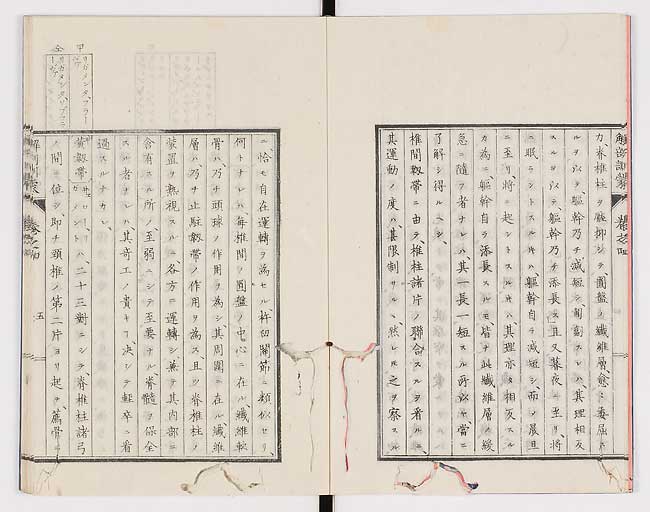 力、脊椎柱ヲ壓抑シテ、圓盤ノ纖維層愈々委屈ス
ルヲ以テ、軀幹乃チ減短シ、其理相反
スルヲ以テ、軀幹乃チ添長ス、且又暮夜ニ至リ、將
ニ眠ラントスルキハ、軀幹自ラ減短シ、而メ晨旦
ニ至リ、將ニ起ントスルキハ、其理亦タ相反スル
カ為ニ、軀幹自ラ添長スルモ、皆ナ此纖維層ノ緩
急ニ隨フ者ナレハ、其一長一短スル所以ヤ、當ニ
了解シ得ルヘシ、
椎間靱帶ニ由テ、椎柱諸片ノ聯合スルヲ看ルニ、
其運動ノ度ハ、甚限制サル、然レ之ヲ察スル
ニ、恰モ自在運轉ヲ為セル杵臼關節ニ類似セリ、
何トナレハ、每椎間ノ圓盤ノ中心ニ在ル、纖維軟
骨ハ、乃チ頭球ノ作用ヲ為シ、其周圍ニ在ル、纖維
層ハ、乃チ止駐靱帶ノ作用ヲ為ス、且ツ脊椎柱ノ
裝置ヲ熟視スルニ、各方ニ運轉シ、兼テ其内部ニ
含有スル所ノ、至弱ニシテ至要ナル、脊髓ヲ保全
スル者ナレハ、其奇工ノ貴キヿ決シテ輕卒ニ看
過スルナカレ、
黄靱帶ハ、二十三對ニシテ、脊椎柱諸弓
ノ間ニ位シ、即チ頸椎ノ第二片ヨリ起テ、薦骨ニ
五